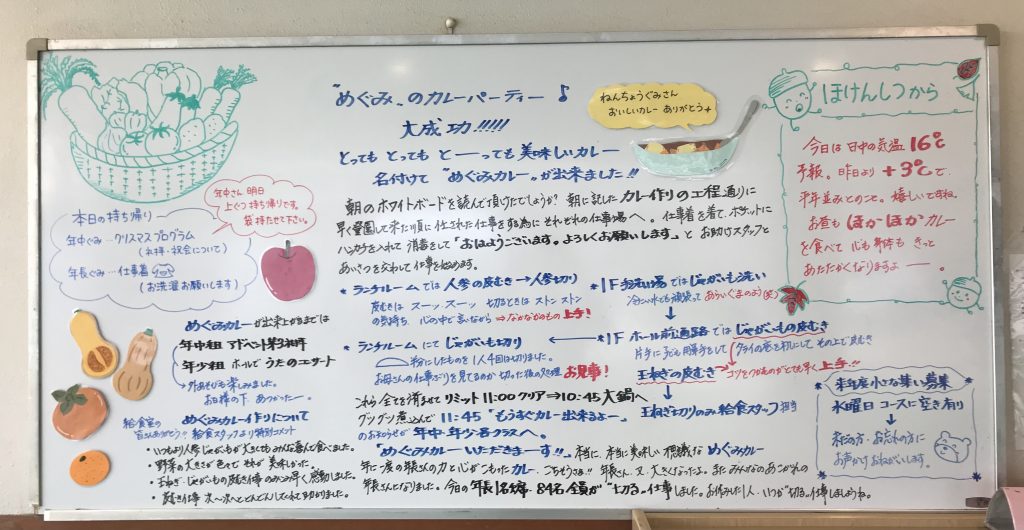 "めぐみ"のカレーパーティー♪
大成功!!!!!
とっても とっても とーーっても 美味しいカレー
名付けて "めぐみカレー"が出来ました!!
ねんちょうぐみさん
おいしいカレー ありがとう
ほけんしつから
今日は 日中の気温 16℃
予報。昨日より +3℃で、
平年並みとのこと。嬉しいですね。
お昼も ほかほかカレー
を食べて 心も身体も きっと
あたたかくなりますよ ー。
年中さん 明日
上ぐつ持ち帰りです。
袋 持たせて下さい。
本日の持ち帰り
年中ぐみ…クリスマスプログラム
(お拝・祝会について)
年長ぐみ…仕事着
(お洗濯お願いします)
朝のホワイトボードを読んで頂けたでしょうか? 朝に記した カレー作りの工程通りに
早く登園して来た順に 仕上された仕事をする為に それぞれの仕事場へ。仕事着を着て、ポケットに
ハンカチを入れて 消毒をして「おはようございます。よろしくお願いします。」と お助けスタッフと
あいさつを交わして 仕事を始めます。
* ランチルーム では 人参の皮むき→人参切り
皮むきは スーッ、スーッ 切るときは ストン ストン
の気持ち、心の中で言いながら ⇒なかなかのもの 上手!
* 1F 手洗い場 では じゃがいも洗い
冷たい水でも頑張って あらいぐまのよう(笑)
* ランチルーム にて じゃがいも切り
粉にしたものを 1人4回は切りました。
お母さんの仕事ぶりを見てるのか 切った後の処理 お見事!
*1F ホール前通路 では じゃがいもの皮むき
片手に 子ども用軍手をして
玉ねぎの皮むき
コツをつかむのがとても早く 上手!!
玉ねぎ切りのみ 給食スタッフ 担当
これら 全てを済ませて リミット 11:00 クリア→10:45 大鍋へ
グツグツ煮込んで 11:45 「もうすぐカレー出来るよー」
のお知らせが 年中・年少各クラスへ。
「めぐみカレー いただきまーす!!」 本当に、本当に美味しい 不思議な めぐみカレー
年に一度の 年長さんの力と心がこもったカレー、ごちそうさま!! 年長さん、又、大きくなったよ。また みんなのあこがれの
年長さんとなりました。今日の 年長 84名 全員が "切る"仕事しました。お休みした1人、いつか"切る"仕事しましょうね。
めぐみカレーが出来上がるまでは
年中組 アドベント第3礼拝
年少組 ホールで うたのコンサート
→外あそびも楽しみました。
お日様の下 あつかったー。
給食室の
皆さんありがとう!!
めぐみカレー作りについて
給食スタッフより特別コメント
・いつもより人参じゃがいもが大きくてもみんな喜んで食べました。
・野菜の大きさが色々で それが 美味しかった。
・玉ねぎ、じゃがいもの
・次へ次へと
来年度小さな集い募集
水曜日 コースに空き有り
未就園の方・お友だちの方に
お声かけ お願いします。